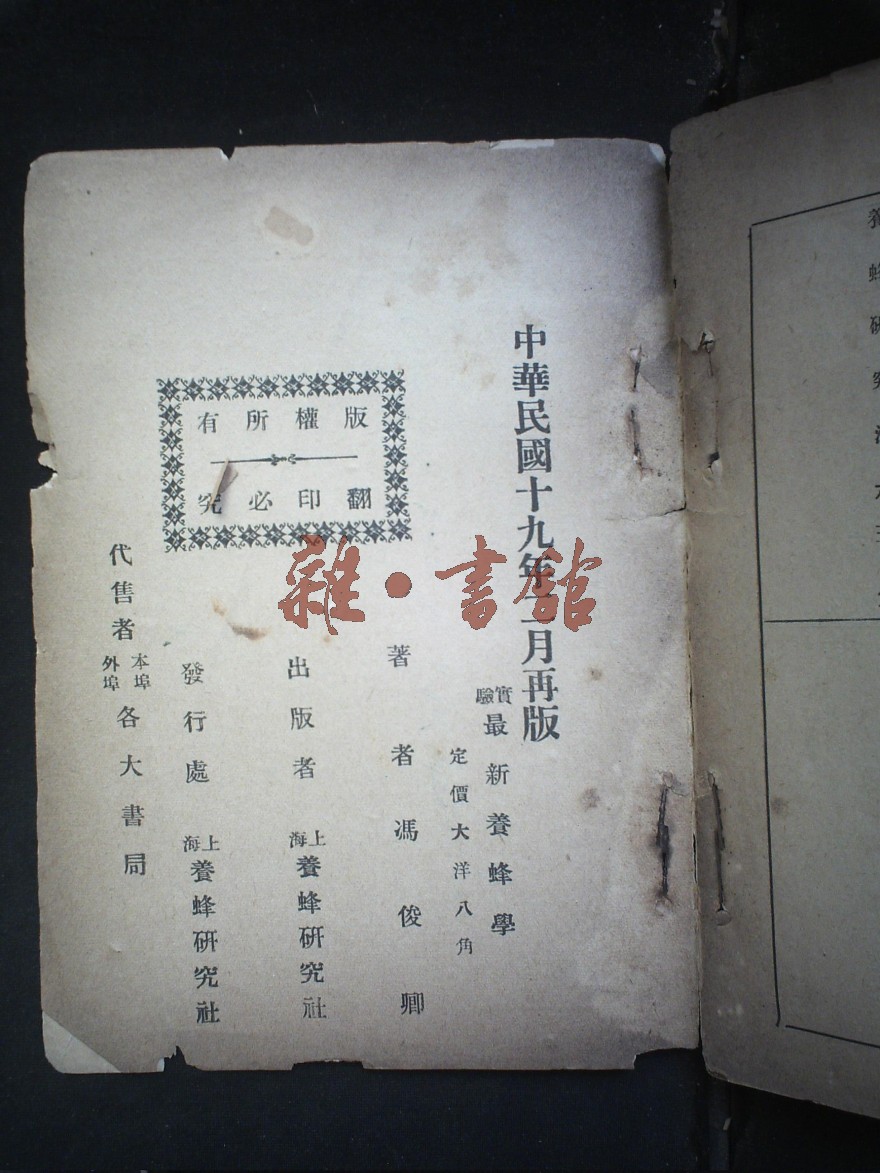 養蜂研究
中華民國十九年二月再版
實驗最新養蜂學
定價大洋八角
著者馮俊卿
出版者上海養蜂研究社
發行處上海養蜂研究社
代售者本埠外埠各大書局
版權所有
翻印必究
雜·書館